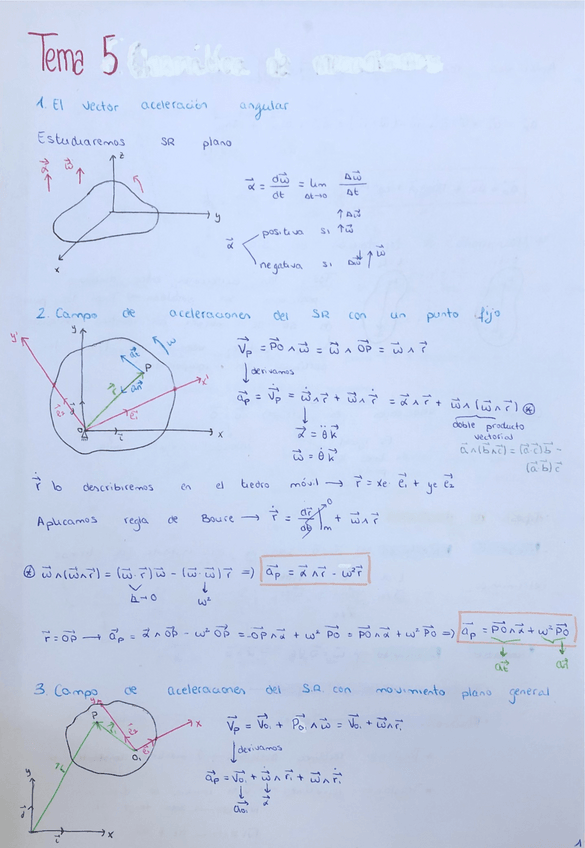 Tema 5
1. El vector aceleración angular
Estudiaremos SR plano
z
y
x
α⃗ ω⃗
α⃗ = dω⃗/dt = lim Δt→0 Δω⃗/Δt
α⃗
positiva si ↑ω⃗ ↑Δω⃗
negativa si Δω⃗↓ ↑ω⃗
2. Campo de aceleraciones del SR con un punto fijo
y' y ω⃗
P x'
r⃗ e⃗₂ e⃗₁
O i⃗ x
V⃗p = P⃗O ∧ ω⃗ = ω⃗ ∧ O⃗P = ω⃗ ∧ r⃗
↓ derivamos
a⃗p = V⃗̇p = ω⃗̇ ∧ r⃗ + ω⃗ ∧ r⃗̇ = α⃗ ∧ r⃗ + ω⃗ ∧ (ω⃗ ∧ r⃗) ⊛
α⃗ = θ̈ k⃗
ω⃗ = θ̇ k⃗
doble producto
vectorial
a∧(b∧c) = (a⃗·c⃗)b⃗ -
(a⃗·b⃗)c⃗
r⃗̇ lo describiremos en el tiedro móvil → r⃗ = xe e⃗₁ + ye e⃗₂
Aplicamos regla de Boure → r⃗̇ = dr⃗/dt]m 0 + ω⃗ ∧ r⃗
⊛ ω⃗∧(ω⃗∧r⃗) = (ω⃗·r⃗)ω⃗ - (ω⃗·ω⃗)r⃗ => a⃗p = α⃗∧r⃗ - ω²r⃗
⊥→0 ω²
r⃗ = O⃗P → a⃗p = α⃗ ∧ O⃗P - ω² O⃗P = -O⃗P∧α⃗ + ω² P⃗O = P⃗O∧α⃗ + ω² P⃗O => a⃗p = P⃗O∧α⃗ + ω² P⃗O
3. Campo de aceleraciones del S.R. con movimiento plano general
P x
O₁
y
j⃗
i⃗ x
V⃗p = V⃗o₁ + P⃗O₁ ∧ ω⃗ = V⃗o₁ + ω⃗∧r⃗₁
↓ derivamos
a⃗p = V⃗̇o₁ + ω⃗̇ ∧ r⃗₁ + ω⃗ ∧ r⃗̇₁
a⃗o₁ α⃗
1